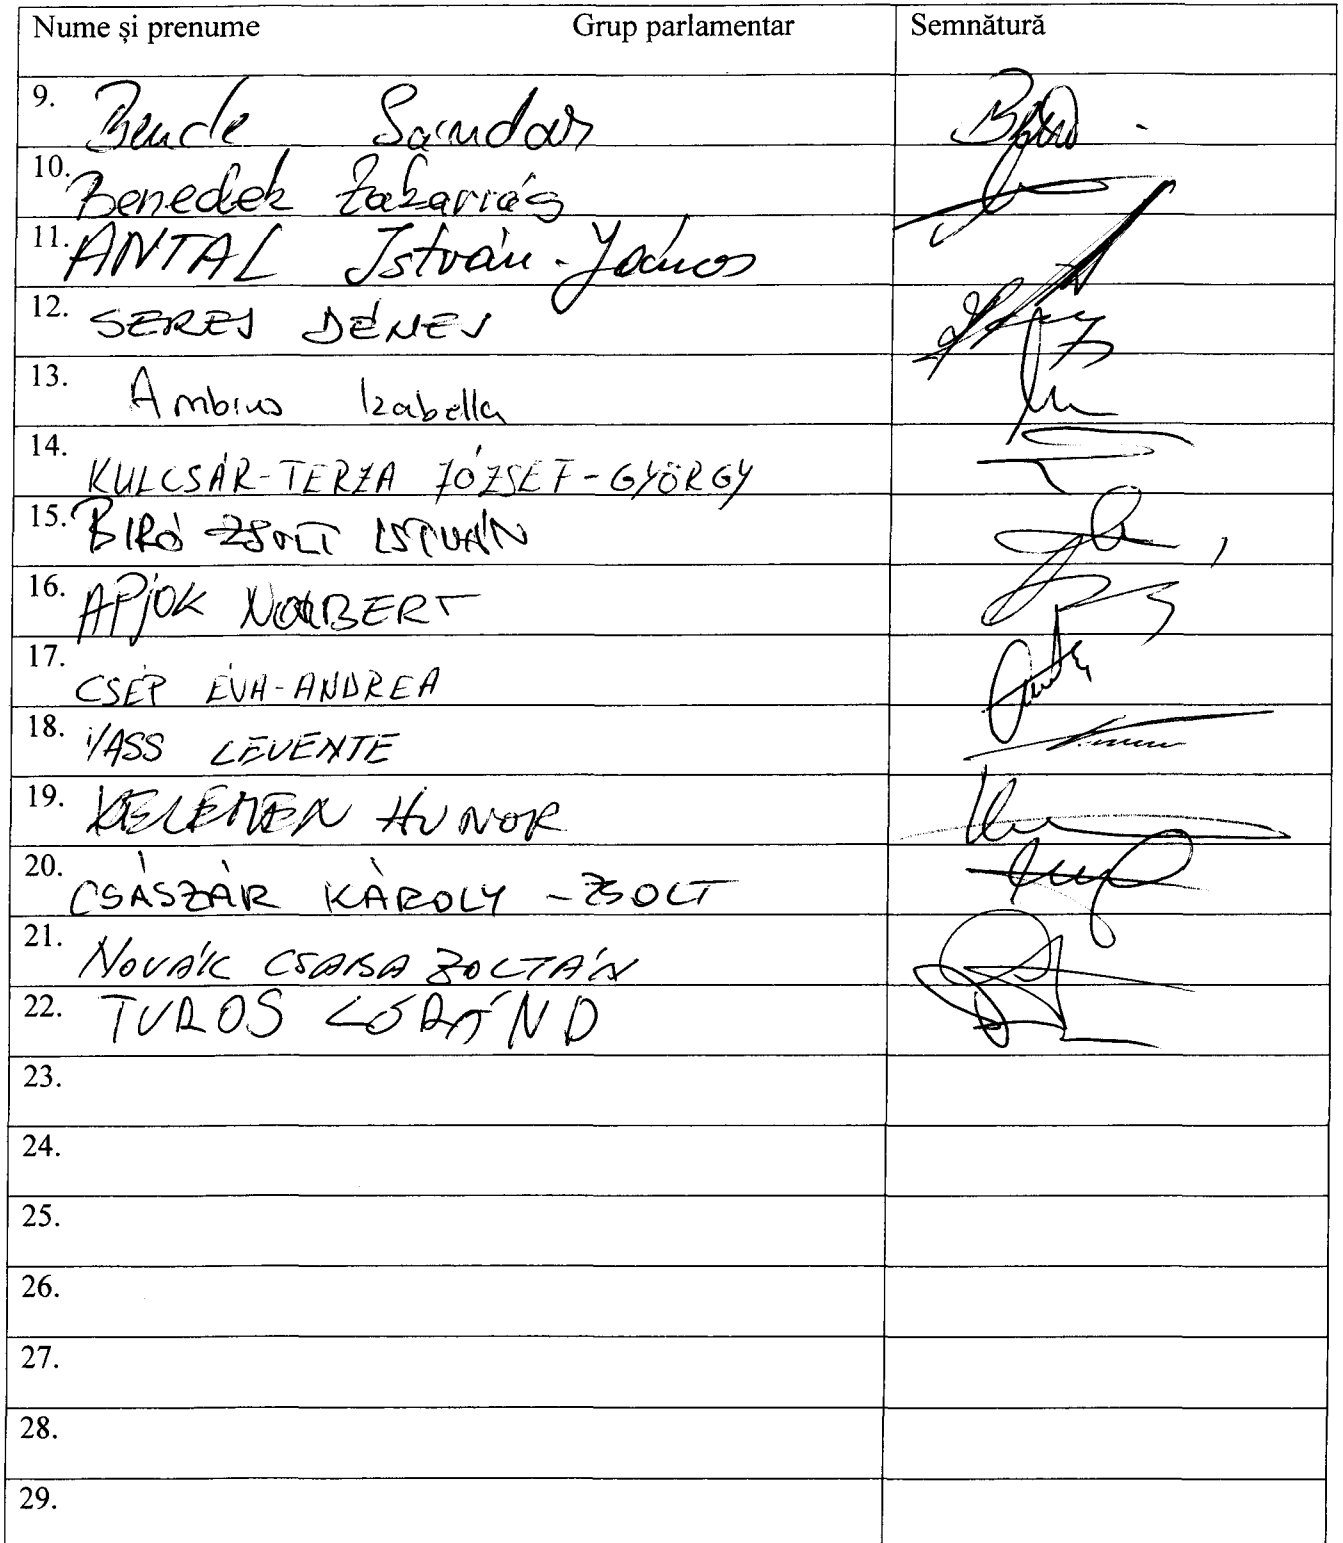 Nume și prenume Grup parlamentar Semnătură
9. Bende Sandor
10. Benedek Zakariás
11. ANTAL István-János
12. SERES DÉNES
13. Ambrus Izabella
14. KULCSÁR-TERZA JÓZSEF-GYÖRGY
15. BIRÓ ZSOLT ISTVÁN
16. APJOK NORBERT
17. CSÉP ÉVA-ANDREA
18. VASS LEVENTE
19. KELEMEN HUNOR
20. CSÁSZÁR KÁROLY-ZSOLT
21. NOVÁK CSABA ZOLTÁN
22. TUROS LÓRÁND
23.
24.
25.
26.
27.
28.
29.